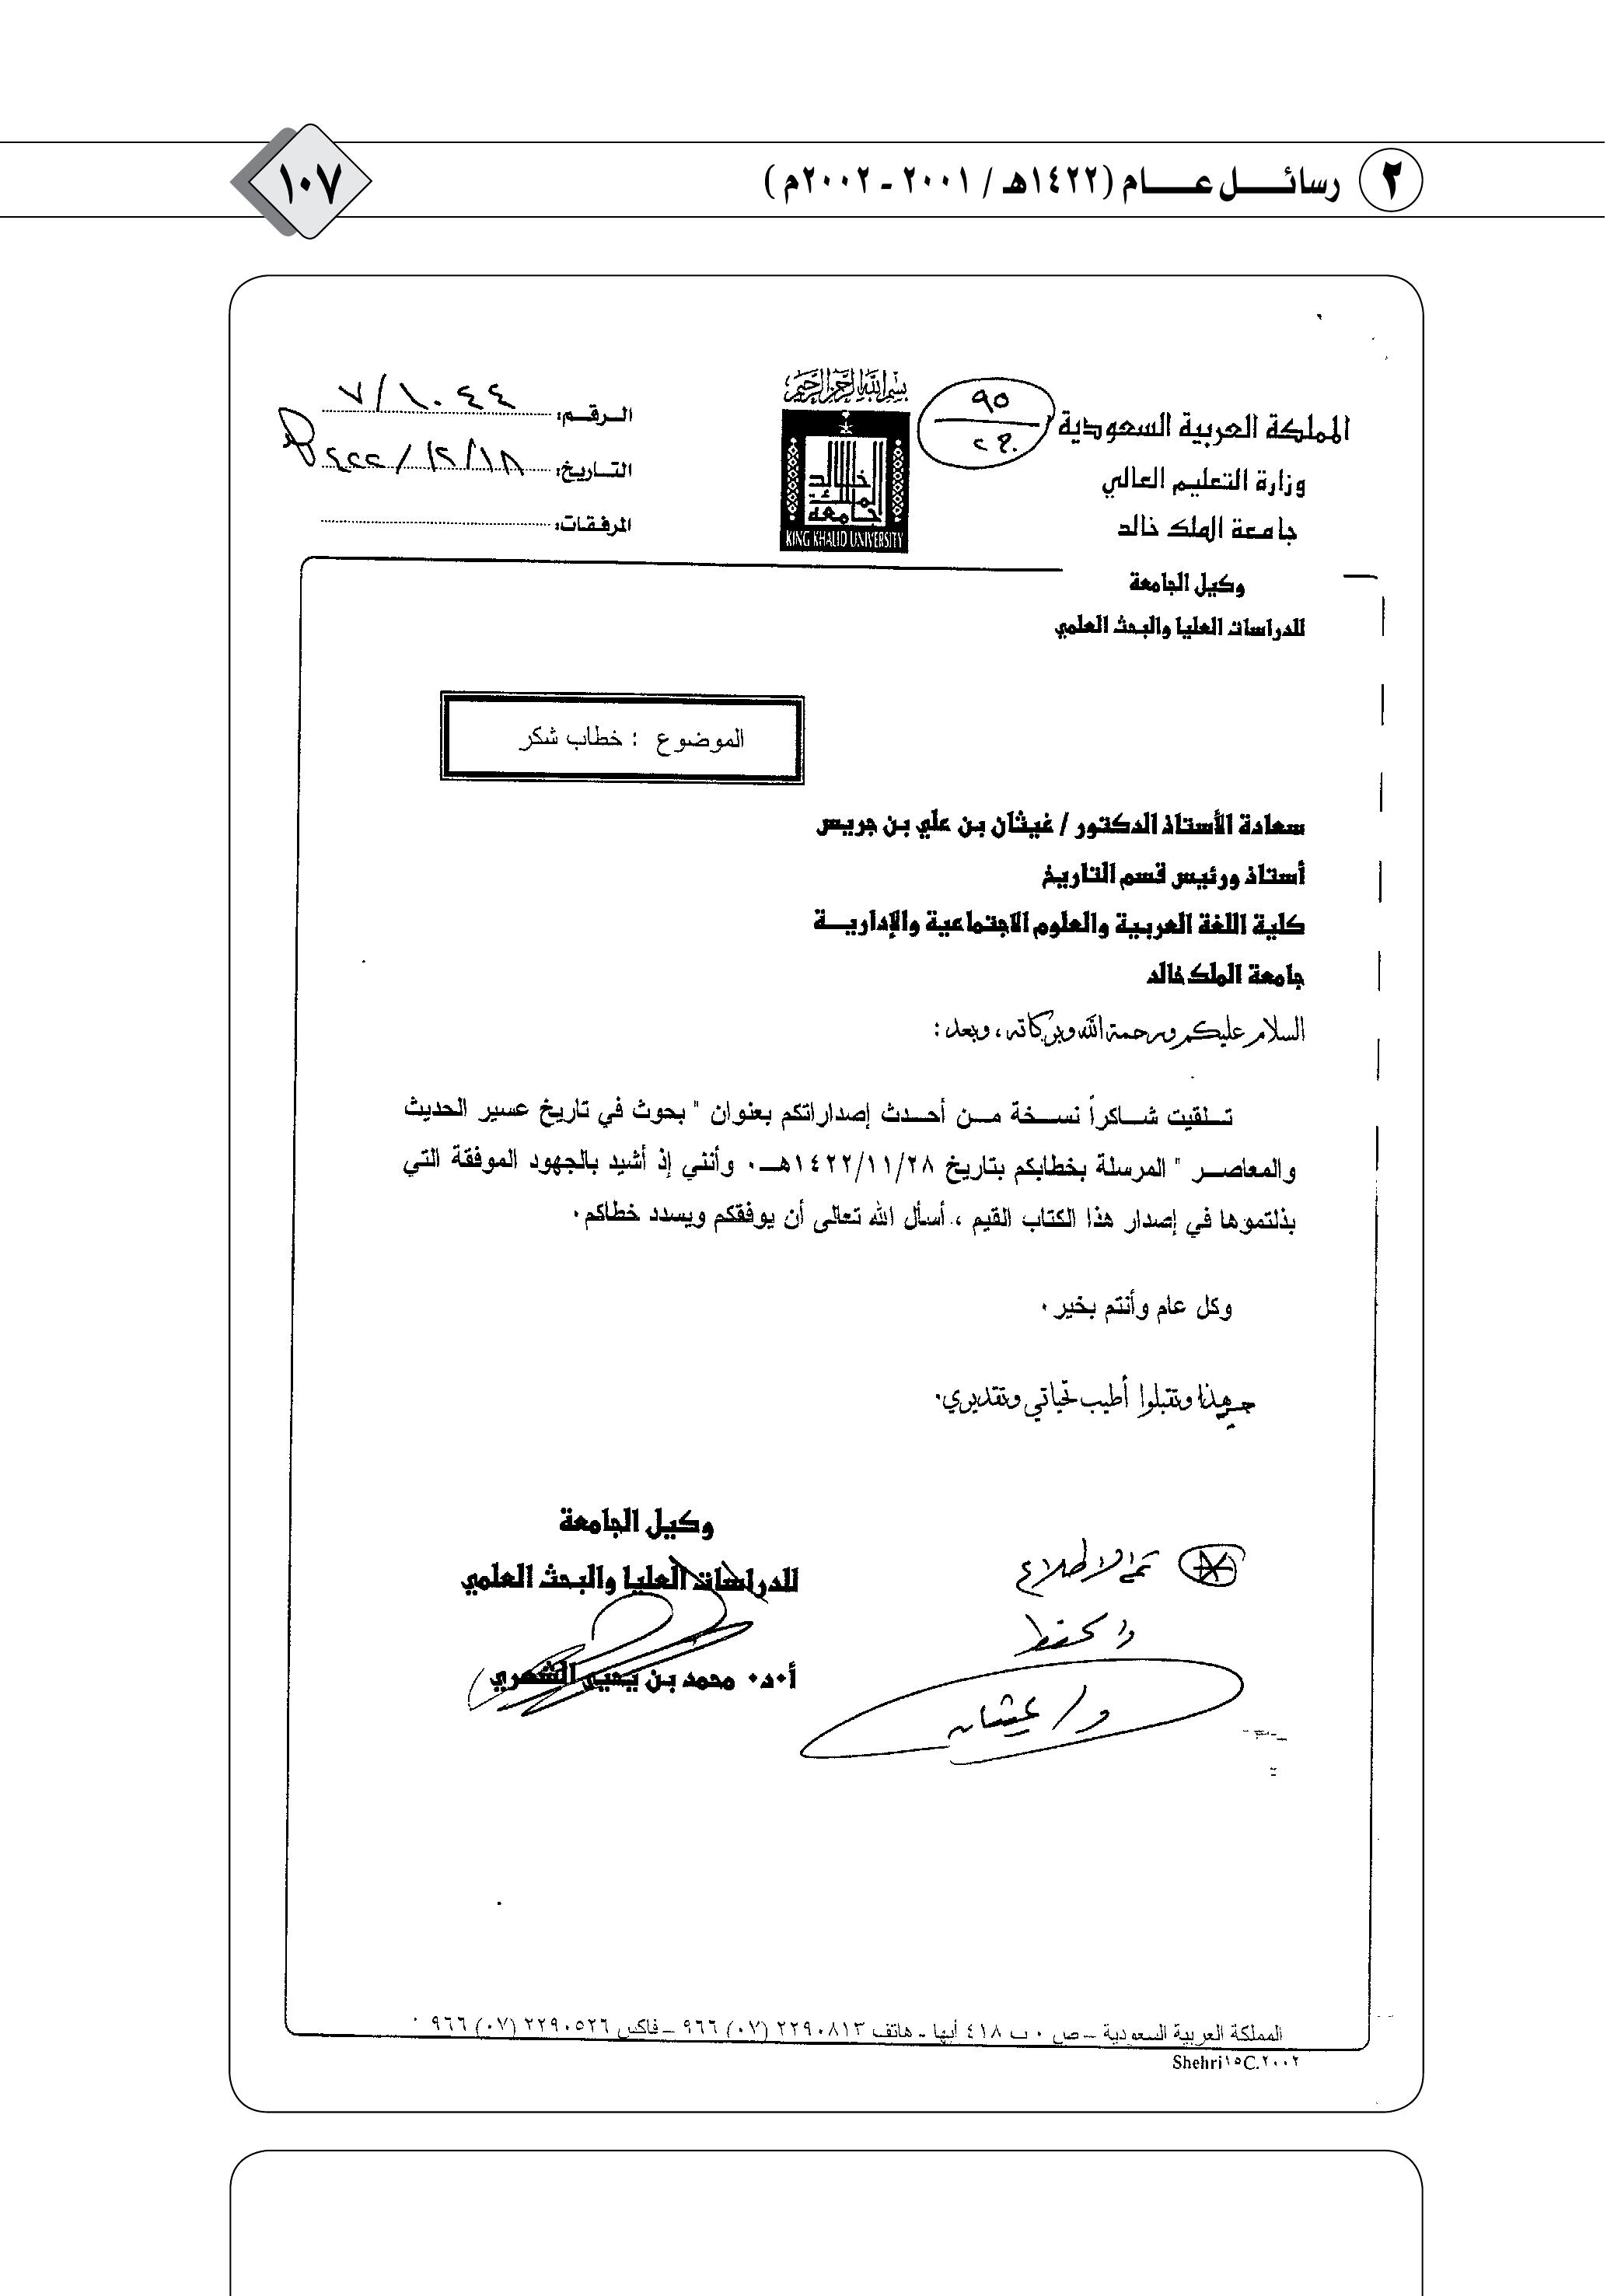 ٢ رسائل عام (١٤٢٢هـ / ٢٠٠١ - ٢٠٠٢م )
١٠٧
المملكة العربية السعودية
وزارة التعليم العالي
جامعة الملك خالد
وكيل الجامعة
للدراسات العليا والبحث العلمي
٩٥
بسم الله الرحمن الرحيم
جامعة الملك خالد
KING KHALID UNIVERSITY
الرقم: ٧/١٠٤٤
التاريخ:
المرفقات:
الموضوع : خطاب شكر
سعادة الأستاذ الدكتور / غيثان بن علي بن جريس
أستاذ ورئيس قسم التاريخ
كلية اللغة العربية والعلوم الاجتماعية والإدارية
جامعة الملك خالد
السلام عليكم ورحمة الله وبركاته ، وبعد :
تلقيت شاكراً نسخة من أحدث إصداراتكم بعنوان " بحوث في تاريخ عسير الحديث
والمعاصر " المرسلة بخطابكم بتاريخ ١٤٢٢/١١/٢٨هـ٠ وأنني إذ أشيد بالجهود الموفقة التي
بذلتموها في إصدار هذا الكتاب القيم ، أسأل الله تعالى أن يوفقكم ويسدد خطاكم٠
وكل عام وأنتم بخير ٠
هذا وتقبلوا أطيب تحياتي وتقديري٠
وكيل الجامعة
للدراسات العليا والبحث العلمي
أ٠د٠ محمد بن يحيى الشهري
تم الاطلاع
والحفظ
د/ غيثان
المملكة العربية السعودية – ص ٠ ب ٤١٨ أبها - هاتف ٢٢٩٠٨١٣ (٠٧) ٩٦٦ – فاكس ٢٢٩٠٥٢٦ (٠٧) ٩٦٦ ٠
Shehri١٥C.٢٠٠٢